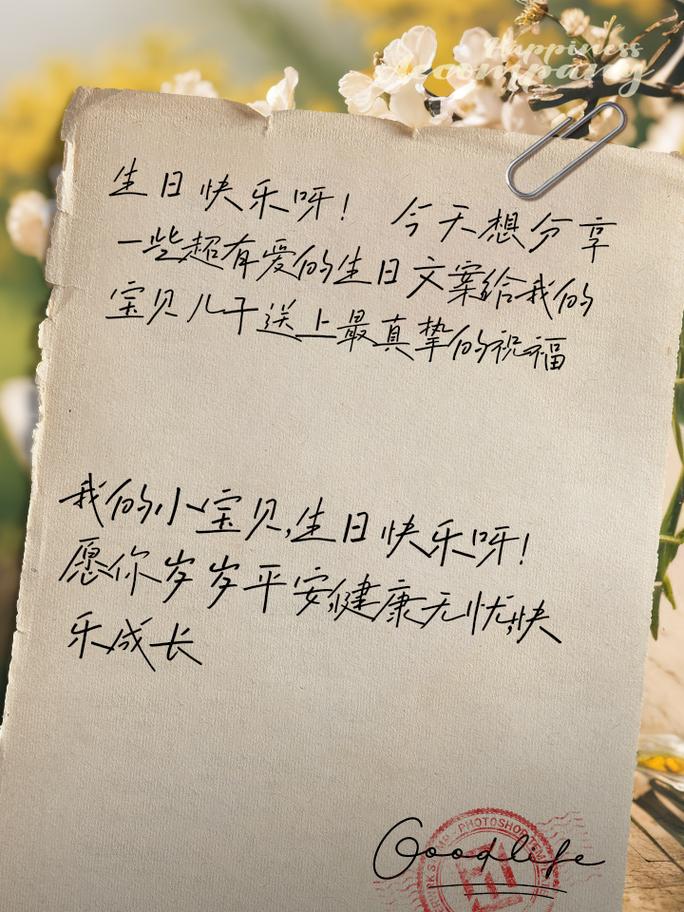 Happiness
Accompany
生日快乐呀! 今天想分享
一些超有爱的生日文案给我的
宝贝儿干送上最真挚的祝福
我的小宝贝,生日快乐呀!
愿你岁岁平安,健康无忧,快
乐成长
PHOTOSHOP
Goodlife